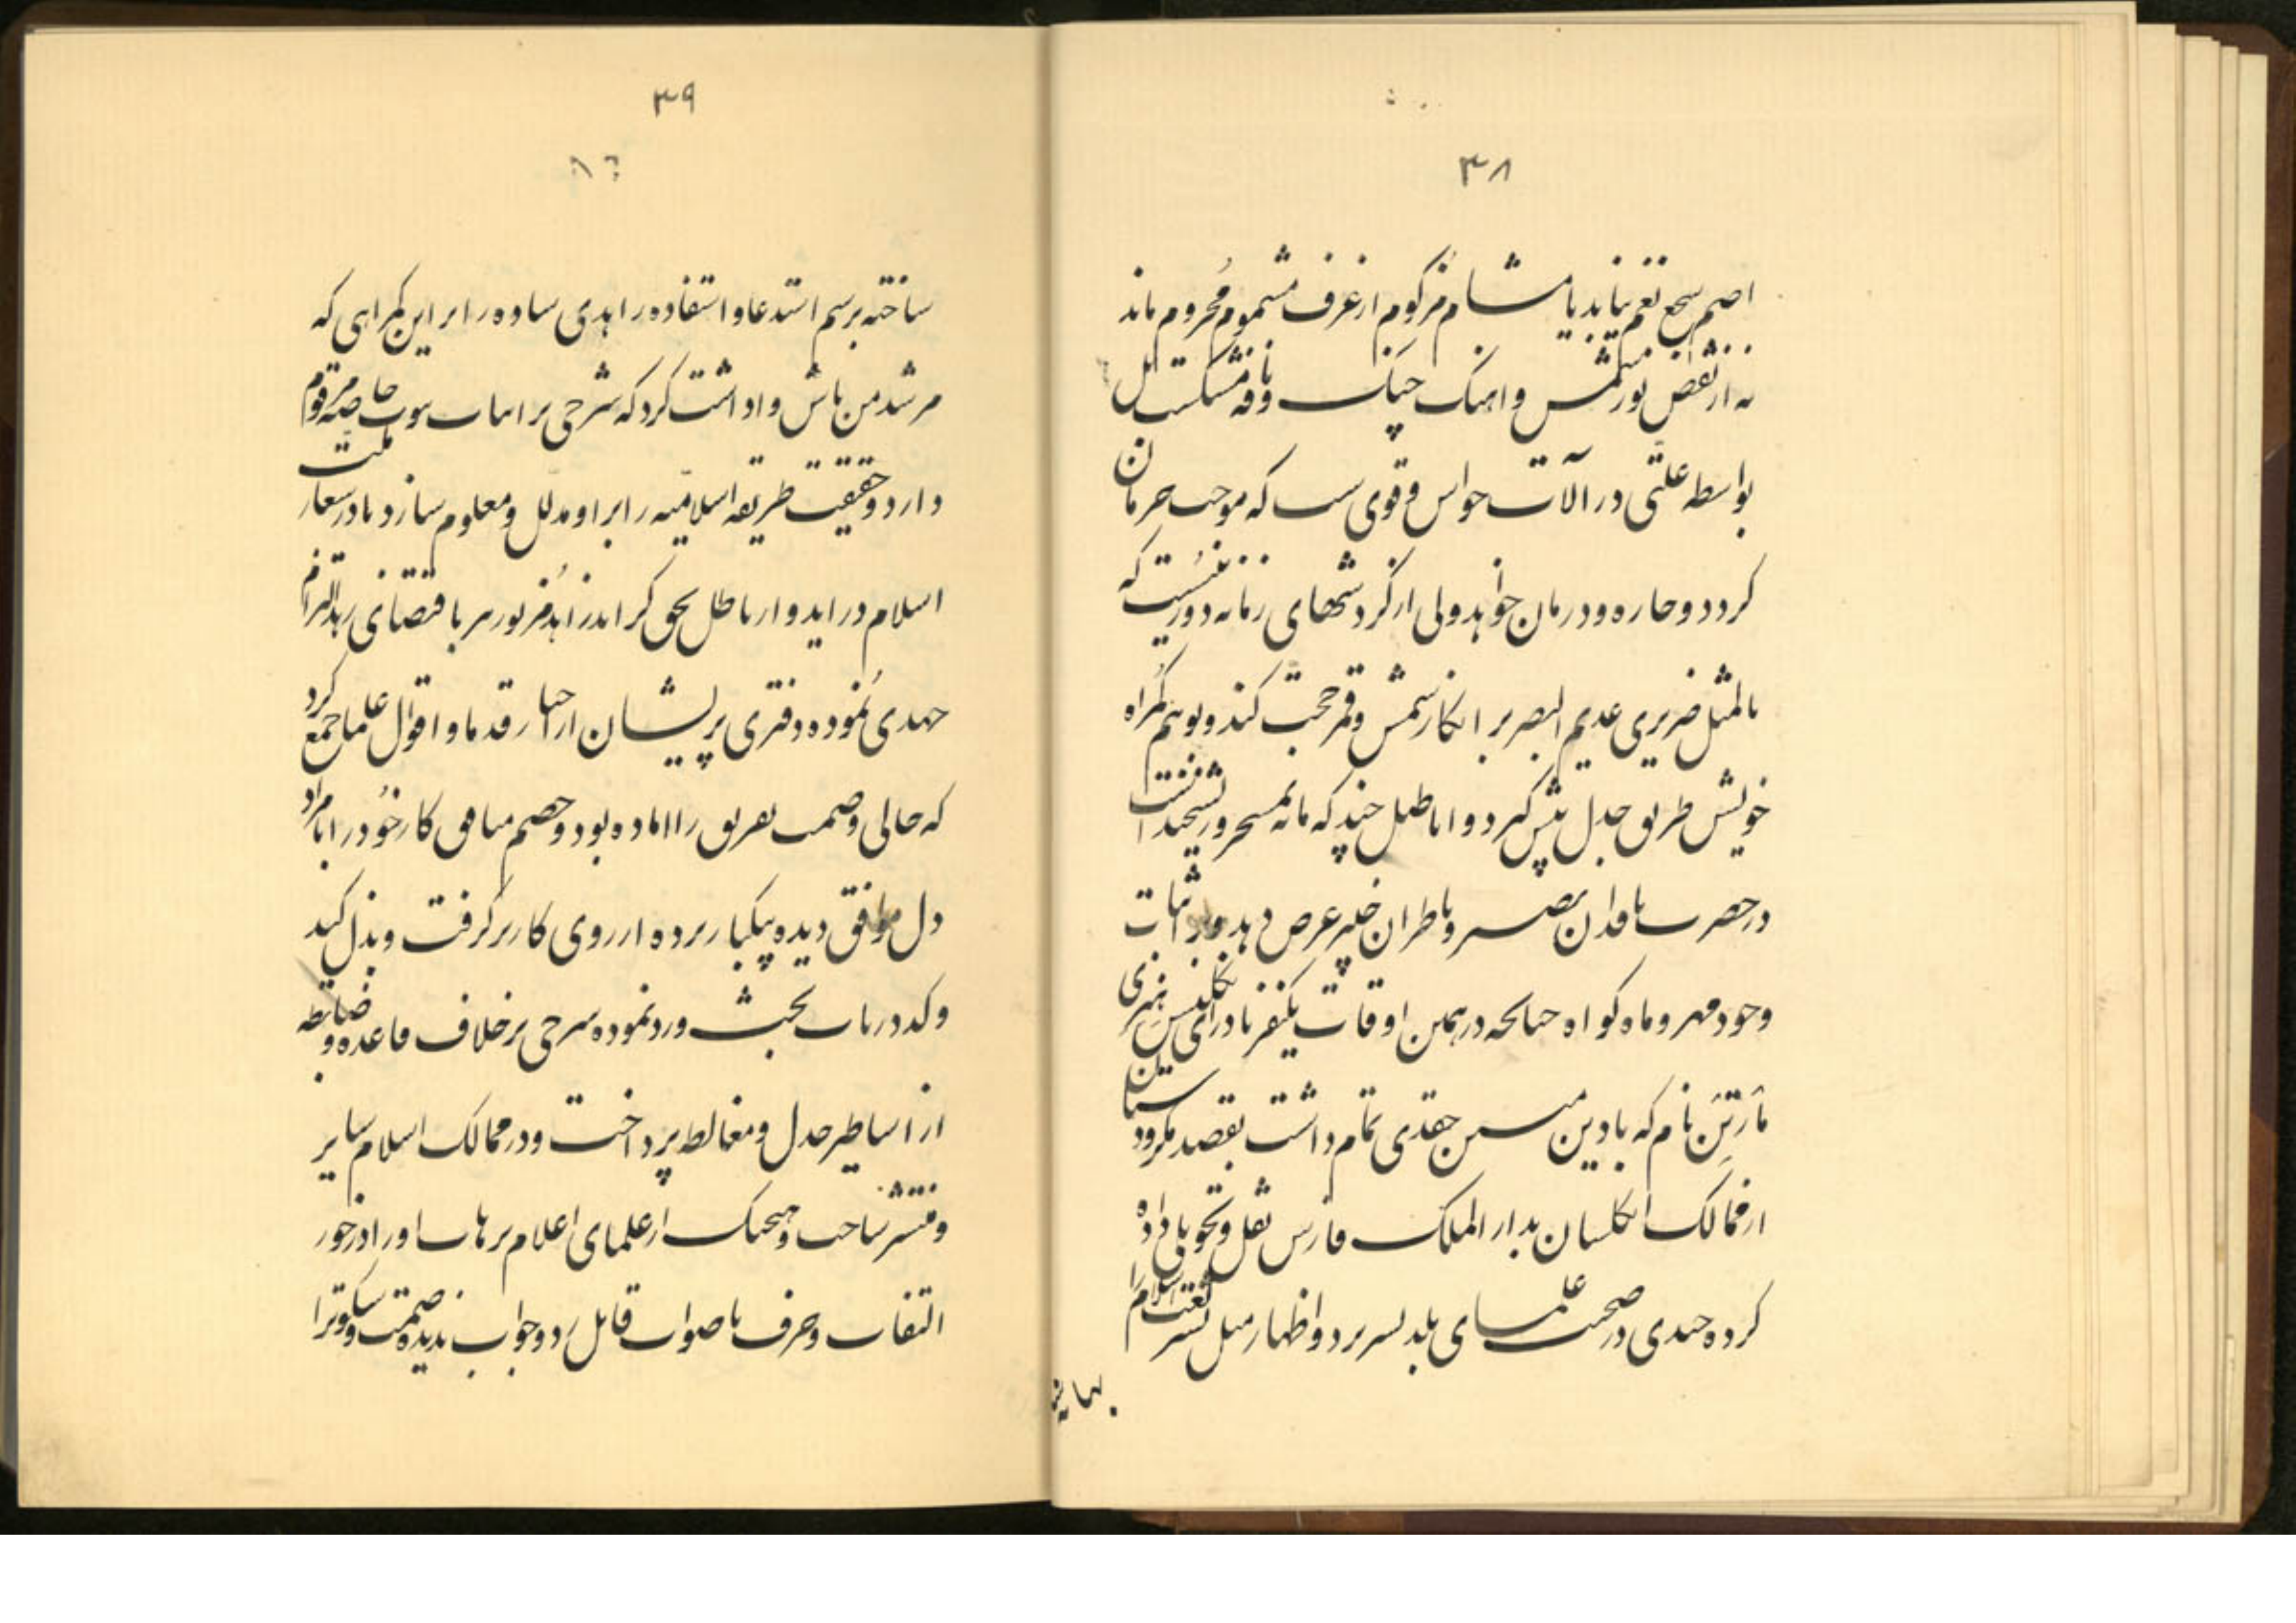 ۳۸
اصم سجع نغم نیابد یا مشام مزکوم از عرف مشموم محروم ماند
نه از نقص نور شمس و اهنک چنک و نافه مشکست بل
بواسطه علتی در آلات حواس و قوی ست که موجب حرمان
کردد و چاره و درمان خواهد ولی از کردشهای زمانه دور نیست که
بالمثل ضریری عدیم البصر بر انکار شمس و قمر حجت کند و بوهم کمراه
خویش طریق جدل پیش کیرد و اباطیل چند که مایه تمسخر و ریشخند است
در حصرت ناقدان بصیر و ناظران خبیر عرض دهد و بر اثبات
وجود مهر و ماه کواه چنانکه در همین اوقات یکنفر پادرای انکلیس هنری
مارتین نام که با دین مبین حقدی تمام داشت بقصد کرد
از ممالک انکلستان بدار الملک فارس نقل و تحویل داده
کرده چندی در صحبت علمای بلد بسر برد و اظهار میل بشریعت اسلام
بهانه
۳۹
ساخته برسم استدعا و استفاده زاهدی ساده را بر این کمراهی که
مرشد من باش واداشت کرد که شرحی بر اثبات نبوت خاصه مرقوم
دارد و حقیقت طریقه اسلامیه را بر او مدلل و معلوم سازد تا در شعار ملت
اسلام در اید و از باطل بحق کراید زاهد مزبور نیز باقتضای زهد التزام
جهدی نموده دفتری پریشان از اخبار قدما و اقوال علما جمع کرد
که حالی وصمت تفریق را اماده بود و خصم منافق کار خود را با مراد
دل موافق دیده یکبار پرده از روی کار بر کرفت و بذل کید
و کد در باب بحث و رد نموده شرحی بر خلاف قاعده و ضابطه
از اساطیر جدل و مغالطه پرداخت و در ممالک اسلام سایر
و منتشر ساخت و هیچیک از علمای اعلام ترهات او را در خور
التفات و حرف ناصواب قابل رد و جواب ندیده صمت و سکوت را